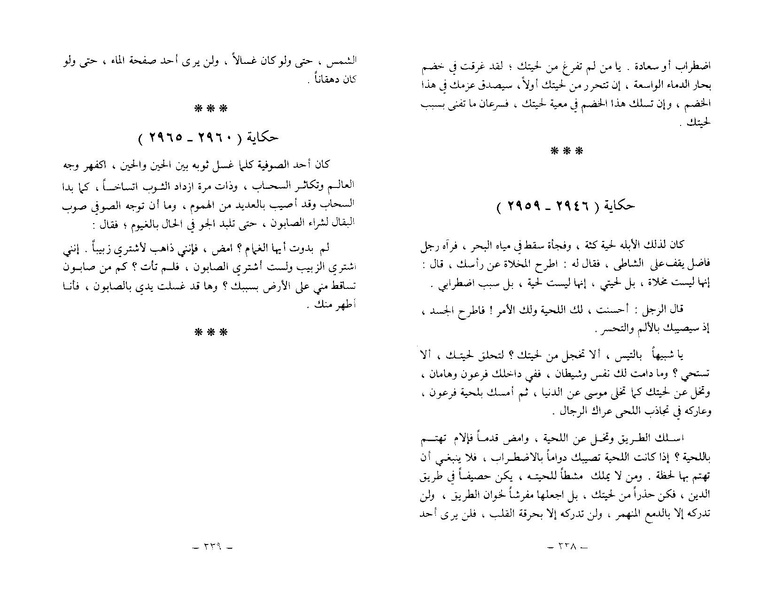 اضطراب أو سعادة . يا من لم تفرغ من لحيتك ؛ لقد غرقت في خضم
بحار الدماء الواسعة ، إن تتحرر من لحيتك أولاً، سيصدق عزمك في هذا
الخضم ، وإن تسلك هذا الخضم في معية لحيتك ، فسرعان ما تفنى بسبب
لحيتك .
***
حكاية ( ٢٩٤٦ ـ ٢٩٥٩ )
كان لذلك الأبله لحية كثة ، وفجأة سقط في مياه البحر ، فرآه رجل
فاضل يقف على الشاطىء ، فقال له : اطرح المخلاة عن رأسك ، قال :
إنها ليست مخلاة ، بل لحيتي ، إنها ليست لحية ، بل سبب اضطرابي .
قال الرجل : أحسنت ، لك اللحية ولك الأمر ! فاطرح الجسد ،
إذ سيصيبك بالألم والتحسر .
يا شبيهاً بالتيس ، ألا تخجل من لحيتك ؟ لتحلق لحيتك ، ألا
تستحي ؟ وما دامت لك نفس وشيطان ، ففي داخلك فرعون وهامان ،
وتخل عن لحيتك كما تخلى موسى عن الدنيا ، ثم أمسك بلحية فرعون ،
وعاركه في تجاذب اللحى عراك الرجال .
اسلك الطريق وتخل عن اللحية ، وامض قدماً فإلام تهتم
باللحية ؟ إذا كانت اللحية تصيبك دواماً بالاضطراب ، فلا ينبغي أن
تهتم بها لحظة . ومن لا يملك مشطاً للحيته ، يكن حصيفاً في طريق
الدين ، فكن حذراً من لحيتك ، بل اجعلها مفرشاً لخوان الطريق ، ولن
تدركه إلا بالدمع المنهمر ، ولن تدركه إلا بحرقة القلب ، فلن يرى أحد
– ٣٣٨ –
الشمس ، حتى ولو كان غسالاً ، ولن يرى أحد صفحة الماء ، حتى ولو
كان دهقاناً .
***
حكاية ( ٢٩٦٠ ـ ٢٩٦٥ )
كان أحد الصوفية كلما غسل ثوبه بين الحين والحين ، اكفهر وجه
العالم وتكاثر السحاب ، وذات مرة ازداد الثوب اتساخاً ، كما بدا
السحاب وقد أصيب بالعديد من الهموم ، وما أن توجه الصوفي صوب
البقال لشراء الصابون ، حتى تلبد الجو في الحال بالغيوم ؛ فقال :
لم بدوت أيها الغمام ؟ امض ، فإنني ذاهب لأشتري زبيباً . إنني
اشتري الزبيب ولست أشتري الصابون ، فلم تأت ؟ كم من صابون
تساقط مني على الأرض بسببك ؟ وها قد غسلت يدي بالصابون ، فأنا
أطهر منك .
***
– ٣٣٩ –